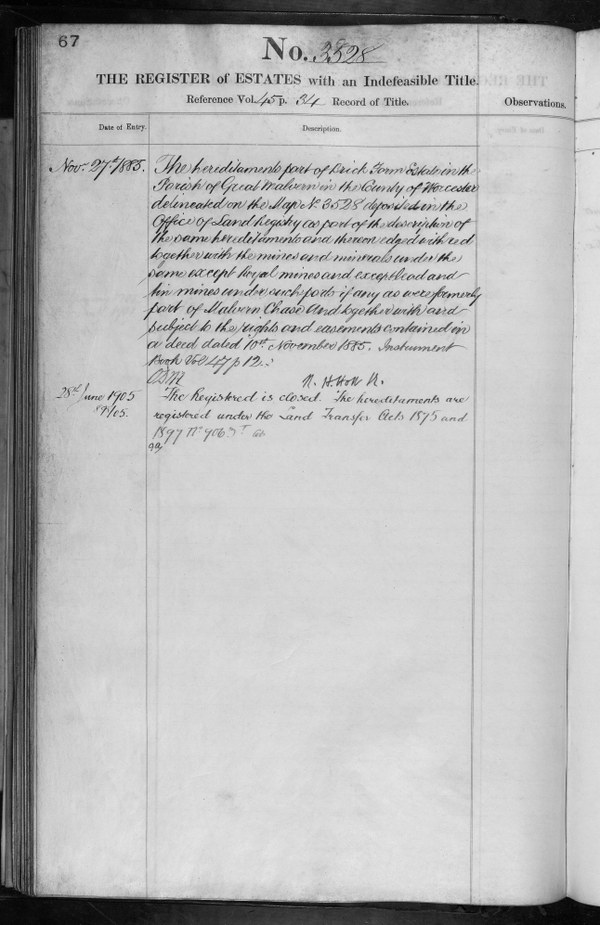 67
No. 3528
THE REGISTER of ESTATES with an Indefeasible Title.
Reference Vol. 45 p. 34 Record of Title.
Observations.
Date of Entry.
Description.
Nov. 27th 1885.
The hereditaments part of Brick Farm Estate in the
Parish of Great Malvern in the County of Worcester
delineated on the Map No. 3528 deposited in the
Office of Land Registry as part of the description of
the same hereditaments and thereon edged with red
together with the mines and minerals under the
same except Royal mines and except lead and
tin mines under such parts if any as were formerly
part of Malvern Chase And together with and
subject to the rights and easements contained in
a deed dated 10th November 1885. Instrument
Book Vol 47 p 12.
28th June 1905
The Registered is closed. The hereditaments are
registered under the Land Transfer Acts 1875 and
1897 No.